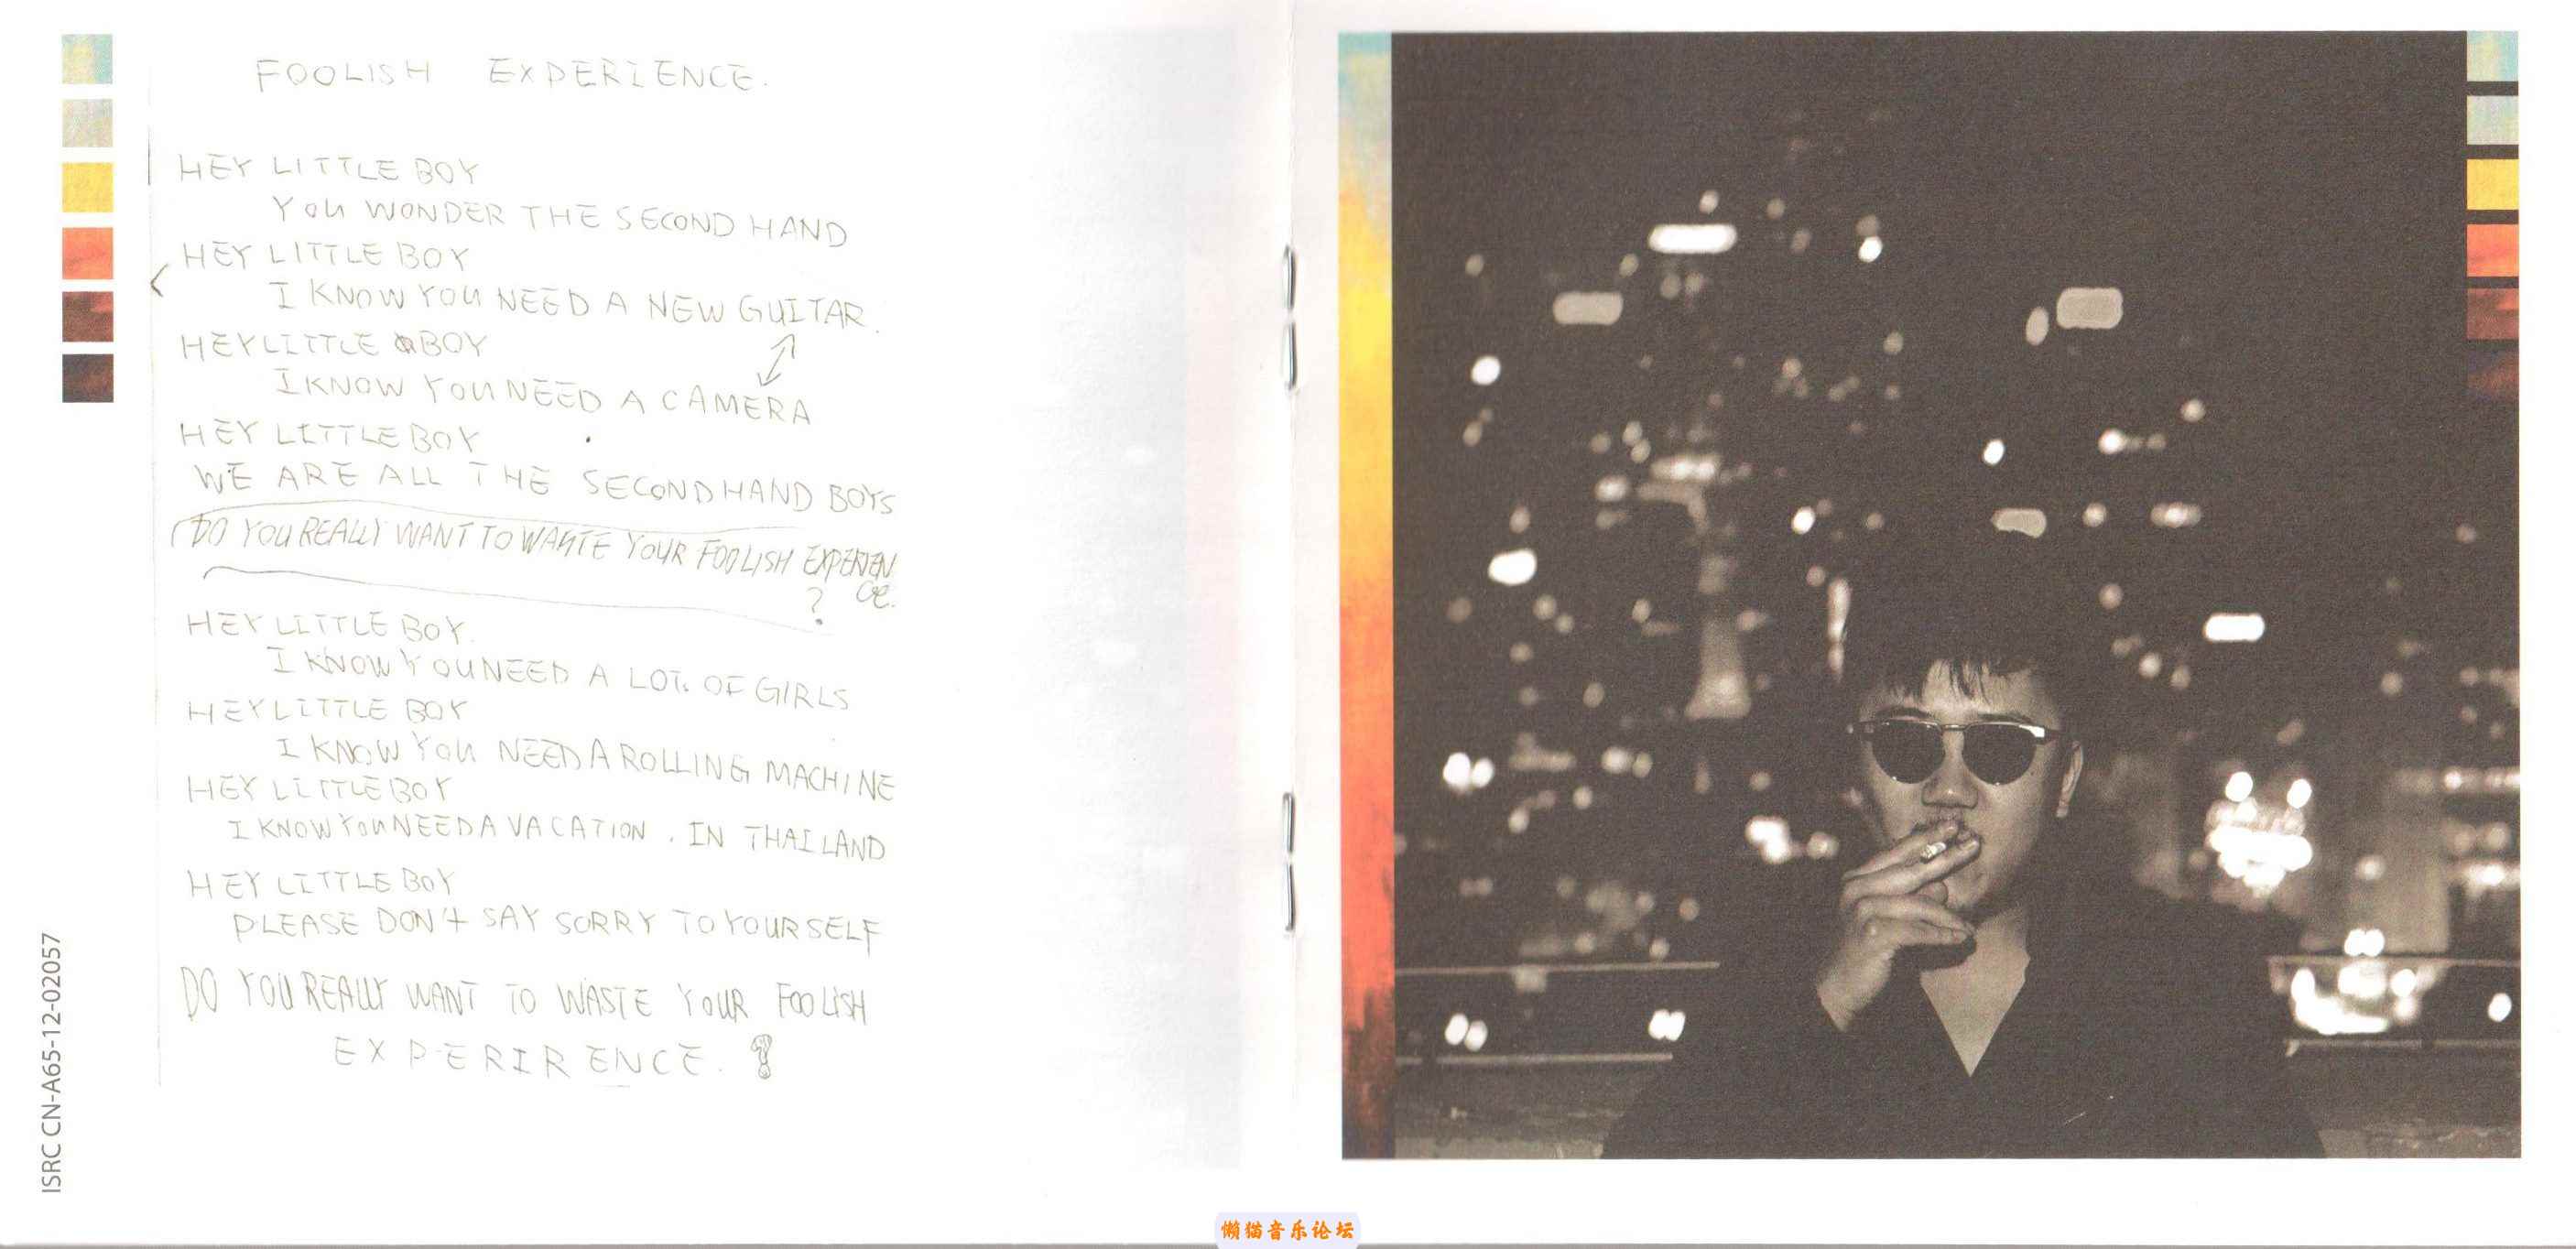 FOOLISH EXPERIENCE.
HEY LITTLE BOY
YOU WONDER THE SECOND HAND
HEY LITTLE BOY
I KNOW YOU NEED A NEW GUITAR.
HEY LITTLE BOY
I KNOW YOU NEED A CAMERA
HEY LITTLE BOY
WE ARE ALL THE SECOND HAND BOYS
DO YOU REALLY WANT TO WASTE YOUR FOOLISH EXPERIEN
ce.
?
HEY LITTLE BOY.
I KNOW YOU NEED A LOT. OF GIRLS
HEY LITTLE BOY
I KNOW YOU NEED A ROLLING MACHINE
HEY LITTLE BOY
I KNOW YOU NEED A VACATION. IN THAILAND
HEY LITTLE BOY
PLEASE DON't SAY SORRY TO YOURSELF
DO YOU REALLY WANT TO WASTE YOUR FOOLISH
EXPERIRENCE. ?
ISRC CN-A65-12-02057
懒猫音乐论坛